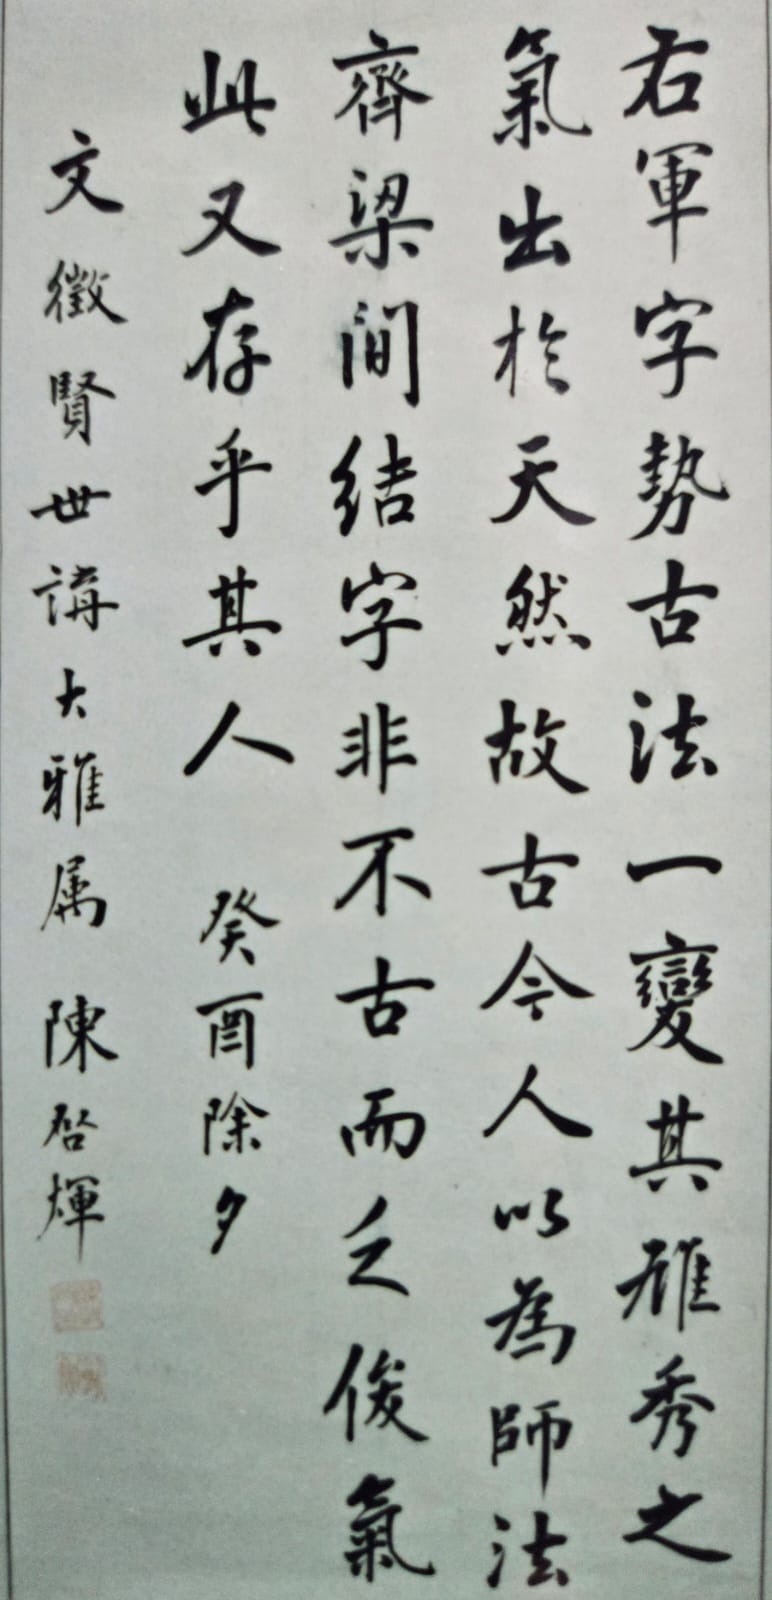 右軍字勢古法一變其雅秀之
氣出於天然故古今人以為師法
齊梁间结字非不古而乏俊氣
此又存乎其人 癸酉除夕
文徵賢世講大雅属 陳啓煇